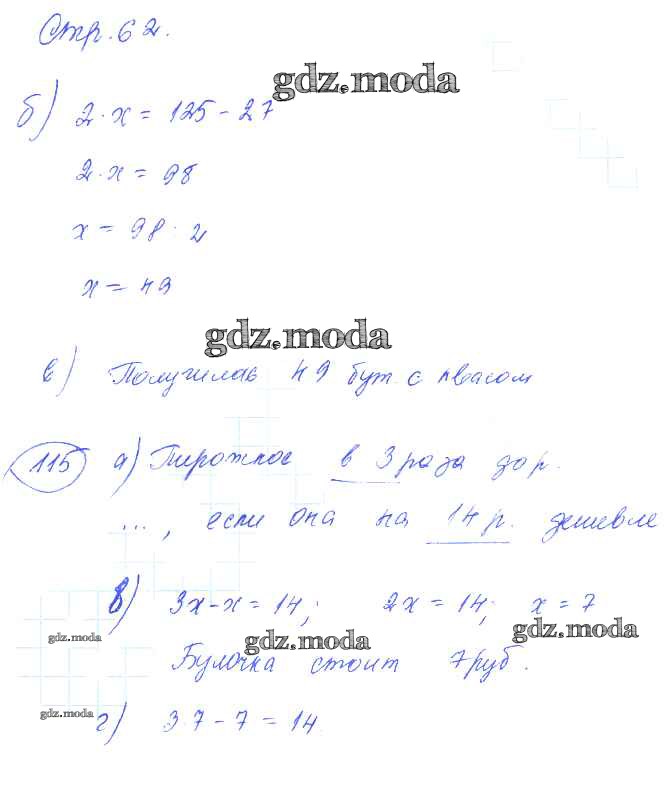 Стр. 62.
gdz.moda
б) 2·x = 125 - 27
2·x = 98
x = 98 : 2
x = 49
gdz.moda
в) Получилось 49 бут. с квасом
115 а) Пирожное в 3 раза дор.
..., если она на 14 р. дешевле
в) 3x - x = 14; 2x = 14; x = 7
gdz.moda gdz.moda gdz.moda
Булочка стоит 7 руб.
gdz.moda г) 3·7 - 7 = 14.